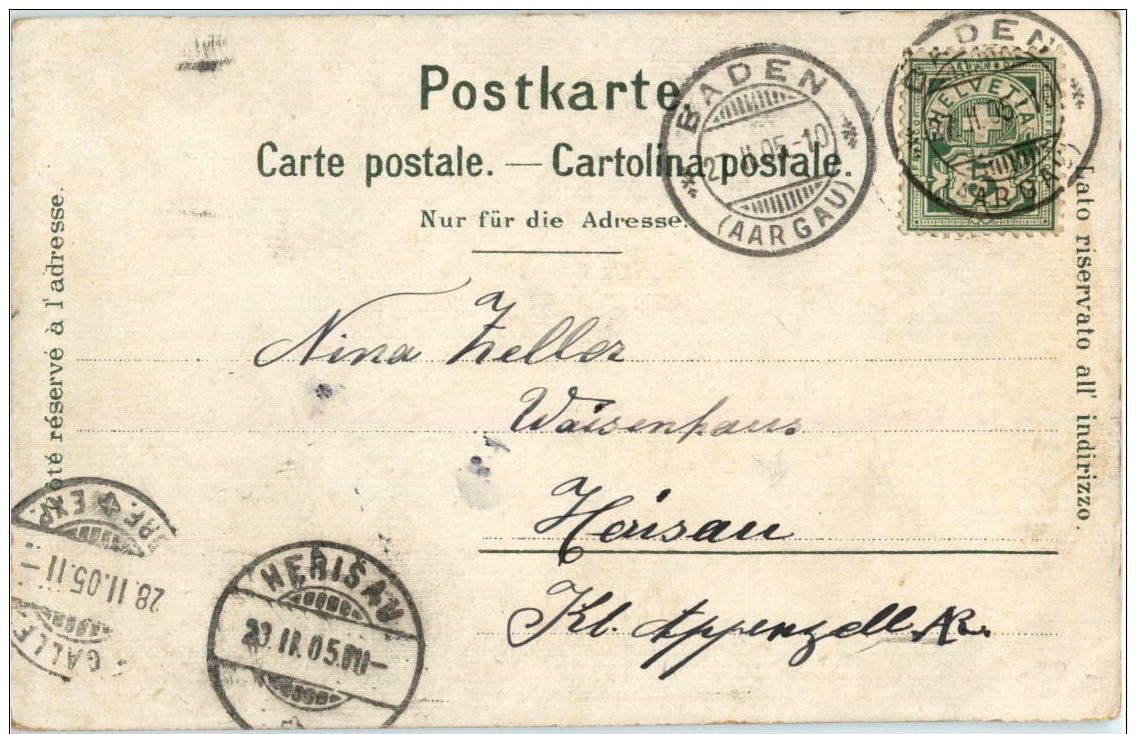 Postkarte
Carte postale. — Cartolina postale.
Nur für die Adresse.
BADEN
27.II.05.-10
(AARGAU)
BADEN
HELVETIA
5
(AARGAU)
ôté réservé à l'adresse.
Lato riservato all' indirizzo.
Nina Zeller
Waisenhaus
Herisau
Kt. Appenzell A.R.
EXP.
28.II.05.11-
GALLE
HERISAU
II.05.